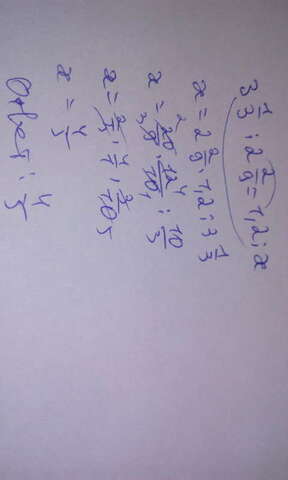 3 1/3 : 2 2/9 = 1,2 : x
x = 2 2/9 · 1,2 : 3 1/3
x = 20/9 · 12/10 : 10/3
x = 2/3 · 4/1 · 3/10
x = 4/5
Ответ: 4/5